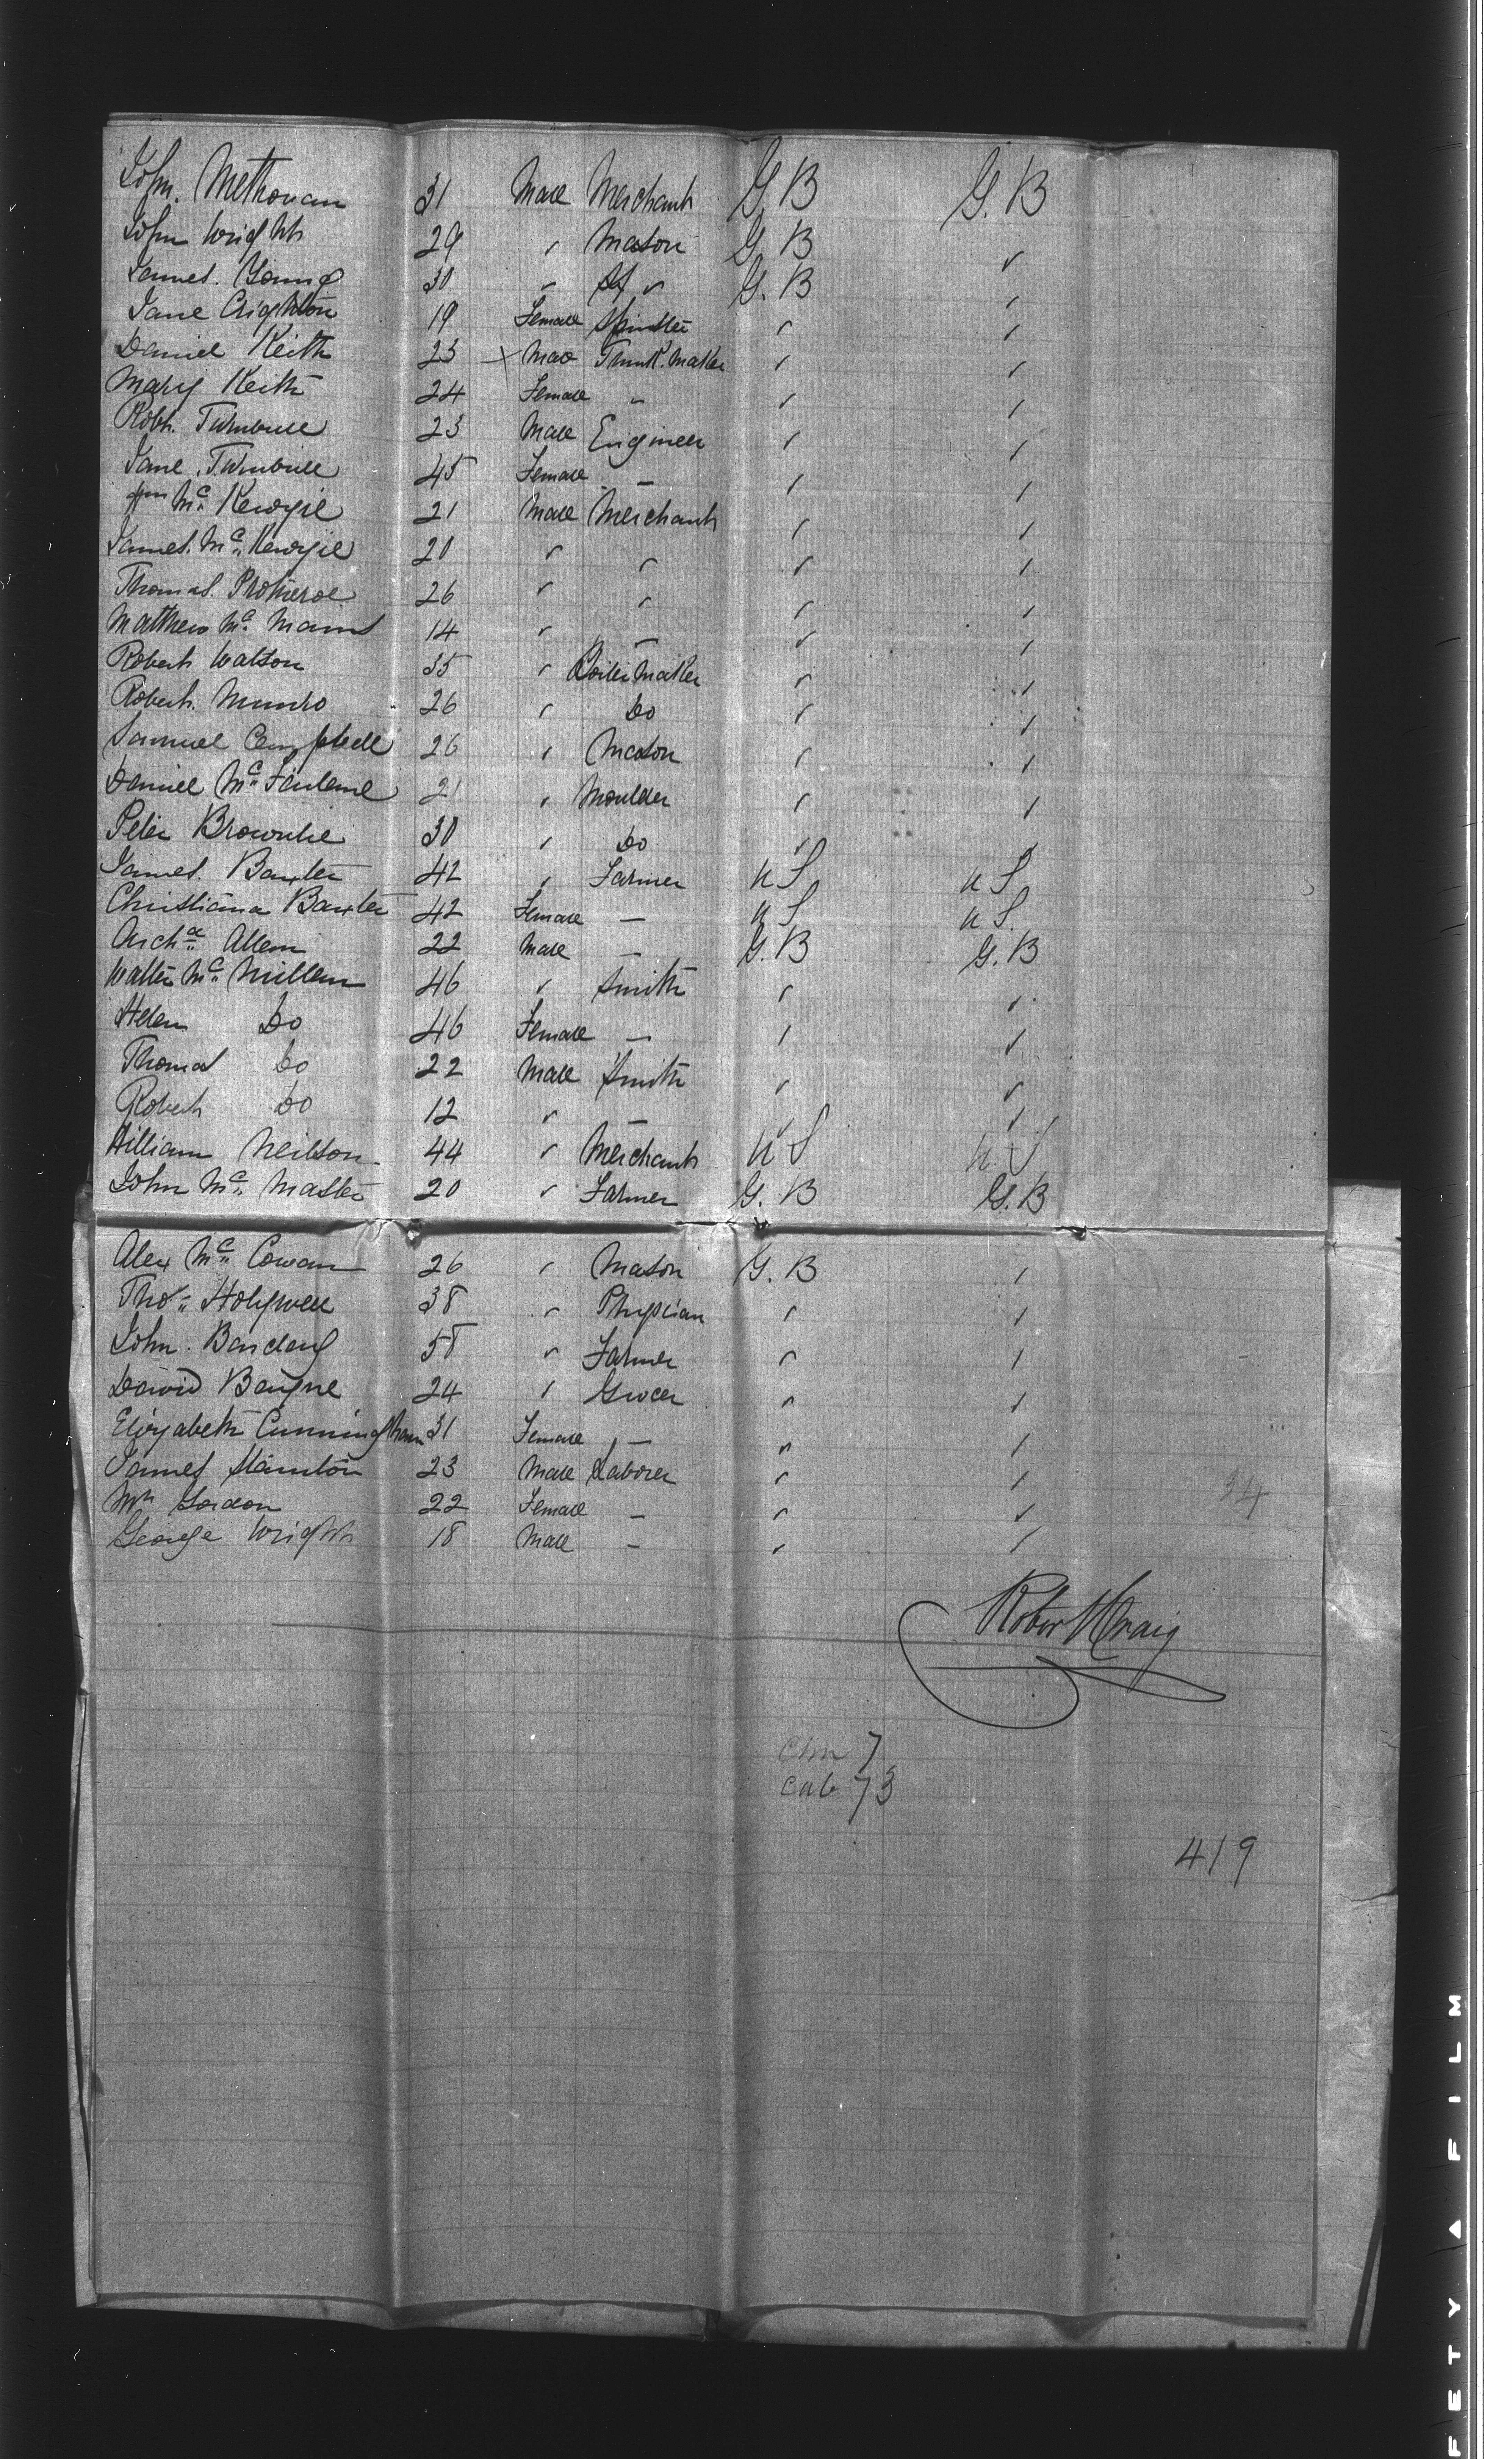 John. Methovan 31 Male Merchant G.B G.B
John Wright 29 " Mason G.B "
James. Young 30 " " G.B "
Jane Crighton 19 Female Spinster " "
Daniel Keith 23 x Male Trunk. Maker " "
Mary Keith 24 Female " " "
Robt. Turnbull 23 Male Engineer " "
Jane. Turnbull 45 Female — " "
Mc. Kenzie 21 Male Merchant " "
James. Mc. Kenzie 20 " " " "
Thomas. Protheroe 26 " " " "
Matthew Mc. 14 " — " "
Robert Watson 35 " Boiler Maker " "
Robert. Munro 26 " Do " "
Samuel Campbell 26 " Mason " "
Daniel Mc. Farlane 21 " Moulder " "
Peter Brownlie 30 " Do " "
James. Baxter 42 " Farmer U S U S
Christiana Baxter 42 Female — U S U S.
Archd. Allan 22 Male — G.B G.B
Walter Mc. Millan 46 " Smith " "
Helen Do 46 Female — " "
Thomas Do 22 Male Smith " "
Robert Do 12 " — " "
William Neilson 44 " Merchant U S U. S
John Mc. Master 20 " Farmer G. B G.B
Alex Mc. Cowan 26 " Mason G. B "
Thos. Holywell 38 " Physician " "
John. 58 " Farmer " "
David Bayne 24 " Grocer " "
Elizabeth Cunningham 31 Female — " "
James 23 Male Laborer " "
Mrs Gordon 22 Female — " "
George Wright 18 Male — " "
24
Robert Craig
Chn 7
Cab 73
419
FETY ▲ FILM